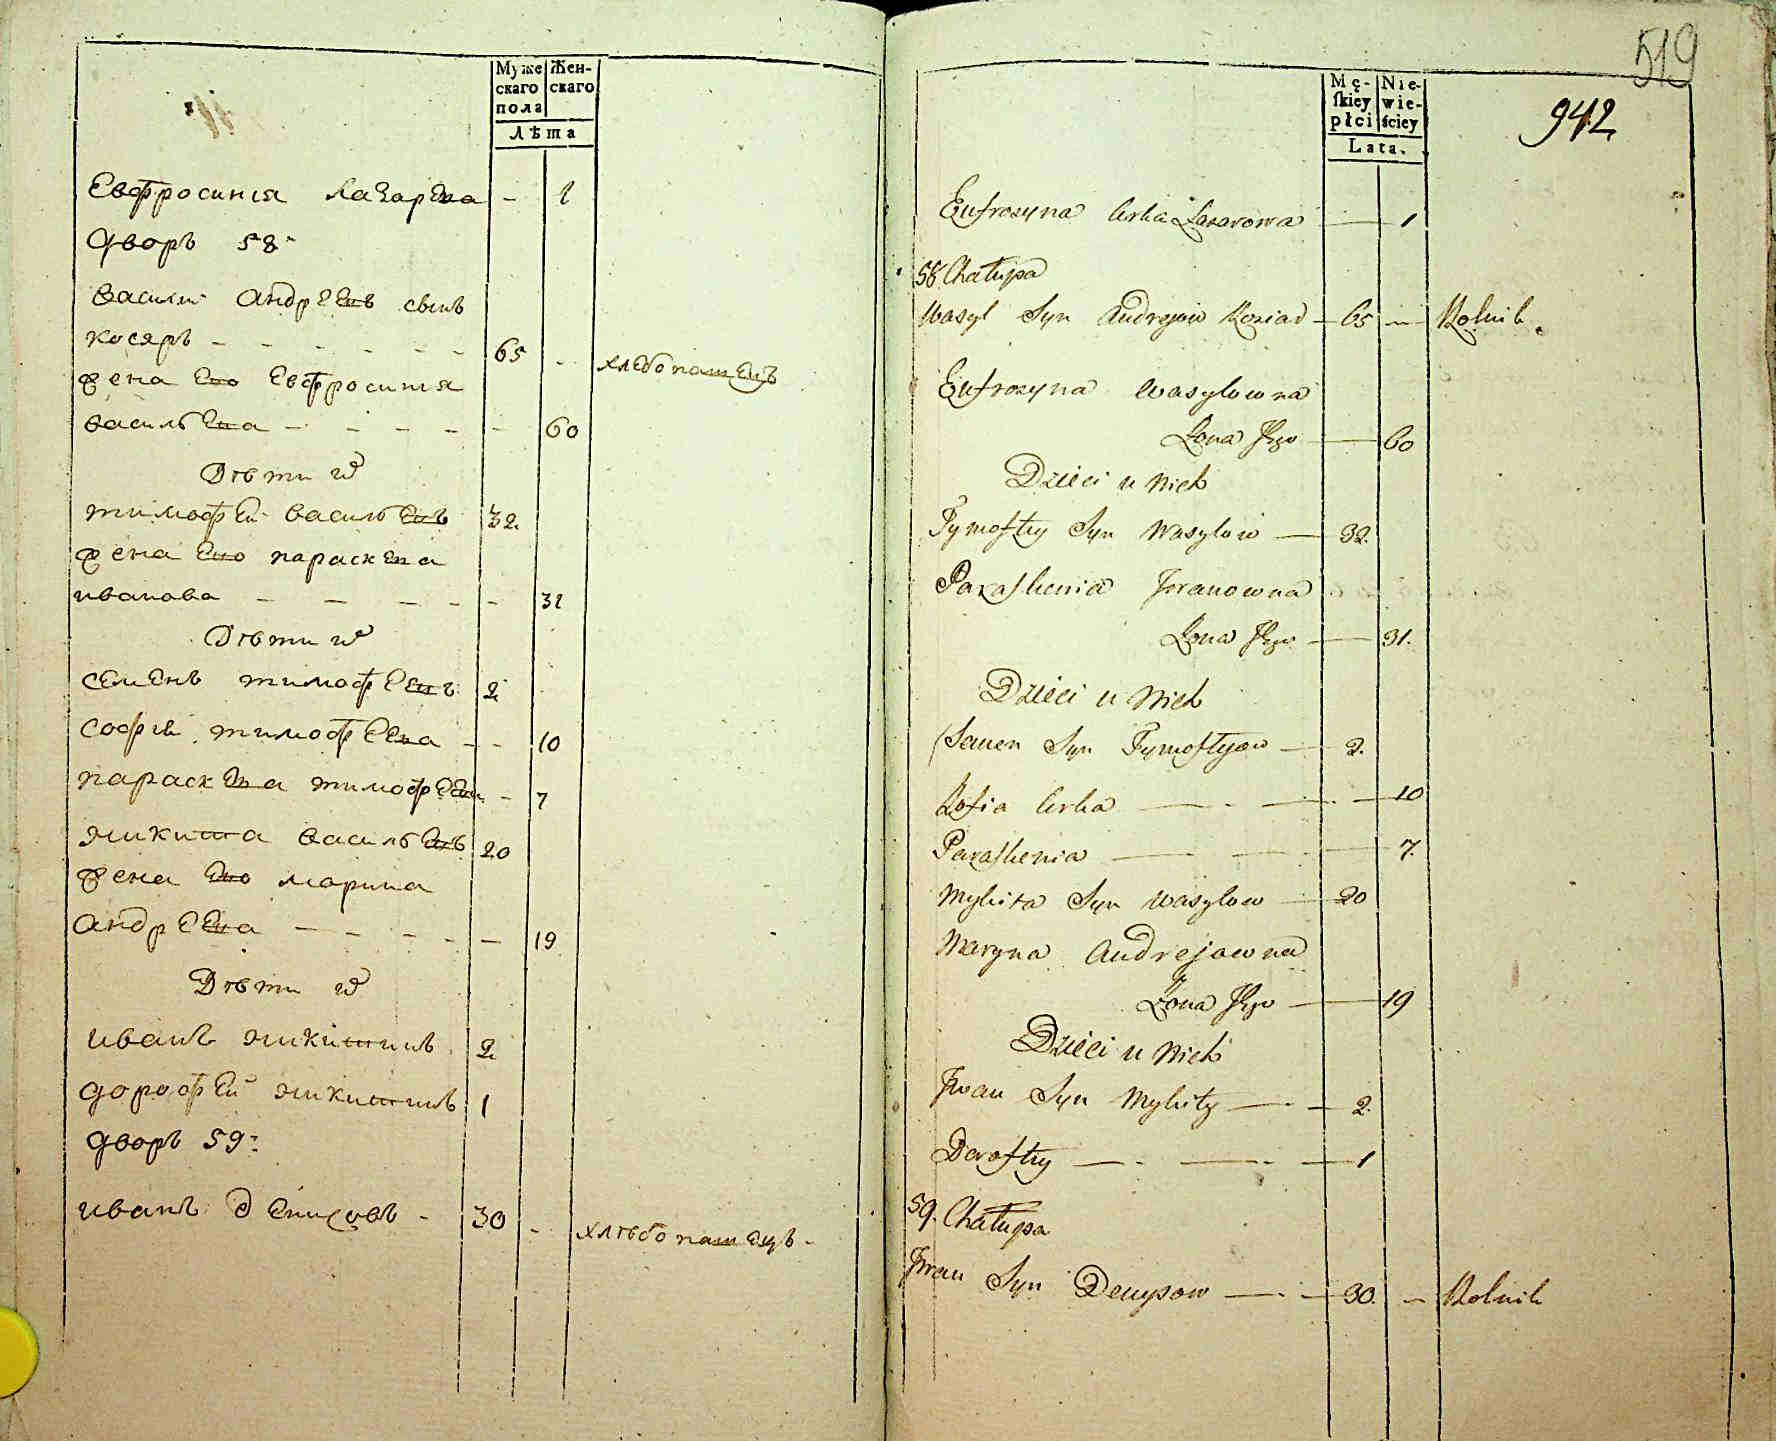 Мужескаго пола
Женскаго
Лѣта
Евфросинія Лазарева - 1
дворъ 58
василий андреевъ сынъ
косяръ - - - - - - 65 - хлебопашецъ
жена ево Евфросиния
васильева - - - - - 60
Дѣти их
тимофей васильевъ 32
жена ево параскева
иванова - - - - - 31
Дѣти их
семенъ тимофеевъ 2
софия тимофеева - - 10
параскева тимофеева - 7
никита васильевъ 20
жена ево марина
андреева - - - - - 19
Дѣти их
иванъ никитинъ 2
дорофей никитинъ 1
дворъ 59
иванъ денисовъ - 30 - хлѣбопашецъ -
519
942
Męskiey płci
Niewieściey
Lata.
Eufrozyna Corka Lazarowa — 1
58 Chałupa
Wasyl Syn Andrejow Koziar — 65 — Rolnik
Eufrozyna Wasylowna
Żona Jego — 60
Dzieci u Nich
Tymoftey Syn Wasylow — 32.
Paraskewia Iwanowna
Żona Jego — 31.
Dzieci u Nich
Semen Syn Tymofteyow — 2.
Zofia Corka — — 10
Paraskewia — — 7.
Mykita Syn Wasylow — 20
Maryna Andrejowna
Żona Jego — 19
Dzieci u Nich
Iwan Syn Mykity — — 2.
Doroftey — — — 1
59. Chałupa
Iwan Syn Denysow — — 30. — Rolnik